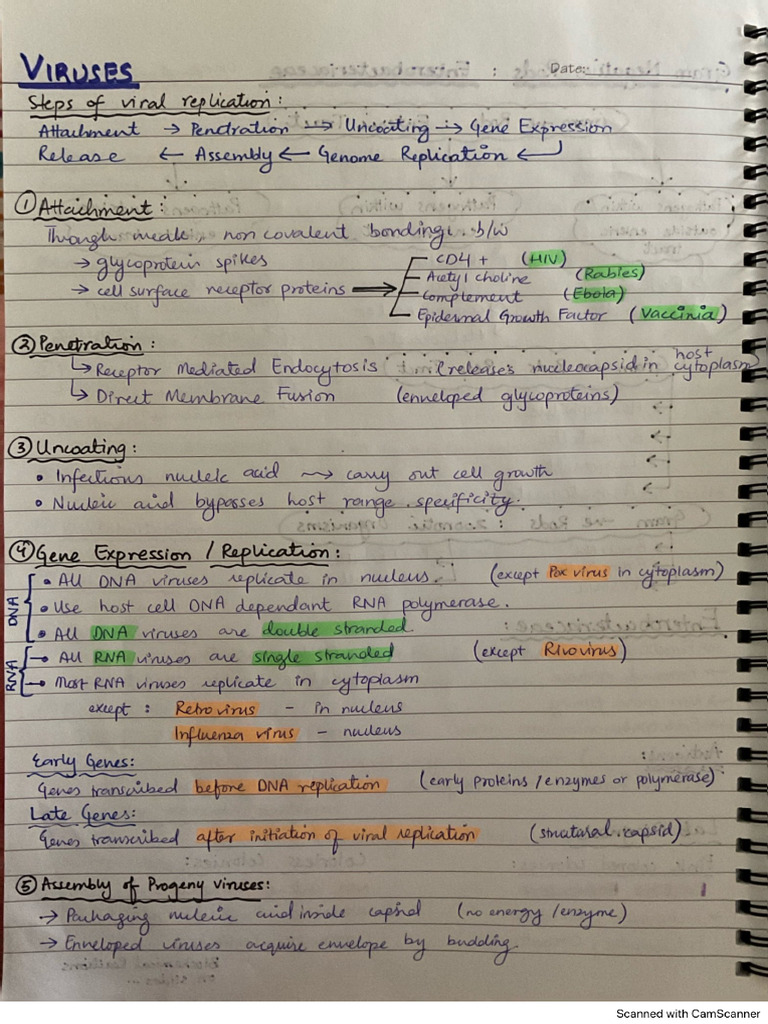 VIRUSES
Date:
Steps of viral replication:
Attachment → Penetration → Uncoating → Gene Expression
Release ← Assembly ← Genome Replication ←
① Attachment:
Through weak, non covalent bonding b/w
→ glycoprotein spikes
→ cell surface receptor proteins →
CD4 + (HIV)
Acetyl choline (Rabies)
Complement (Ebola)
Epidermal Growth Factor (Vaccinia)
② Penetration:
↳ Receptor Mediated Endocytosis (releases nucleocapsid in host cytoplasm
↳ Direct Membrane Fusion (enveloped glycoproteins)
③ Uncoating:
• Infectious nucleic acid → carry out cell growth
• Nucleic acid bypasses host range specificity.
④ Gene Expression / Replication:
DNA
• All DNA viruses replicate in nucleus. (except Pox virus in cytoplasm)
• Use host cell DNA dependant RNA polymerase.
• All DNA viruses are double stranded
RNA
→ All RNA viruses are single stranded (except Rivovirus)
→ Most RNA viruses replicate in cytoplasm
except : Retrovirus - in nucleus
Influenza virus - nucleus
Early Genes:
Genes transcribed before DNA replication (early proteins / enzymes or polymerase)
Late Genes:
Genes transcribed after initiation of viral replication (structural.capsid)
⑤ Assembly of Progeny viruses:
→ Packaging nucleic acid inside capsid (no energy / enzyme)
→ Enveloped viruses acquire envelope by budding.
Scanned with CamScanner